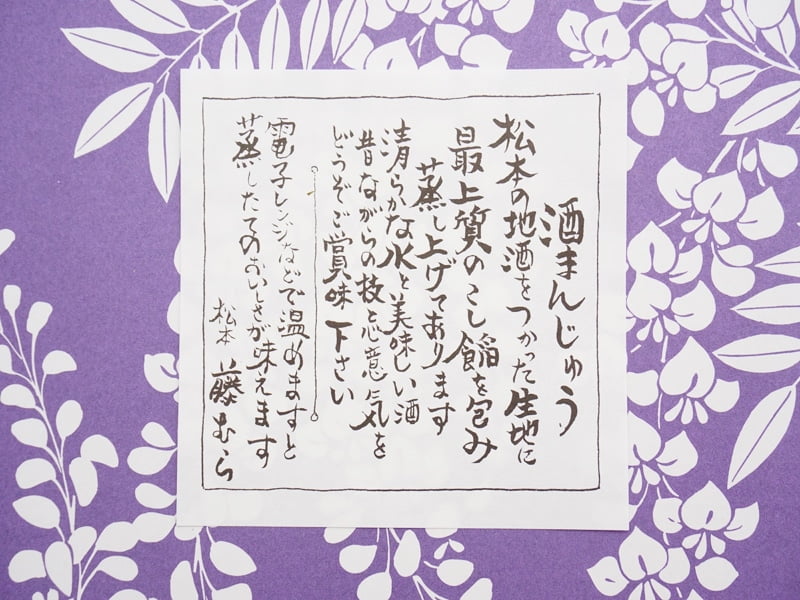 酒まんじゅう
松本の地酒をつかった生地に
最上質のこし餡を包み
蒸し上げてあります
清らかな水と美味しい酒
昔ながらの技と心意気を
どうぞご賞味下さい
電子レンジなどで温めますと
蒸したてのおいしさが味えます
松本 藤むら